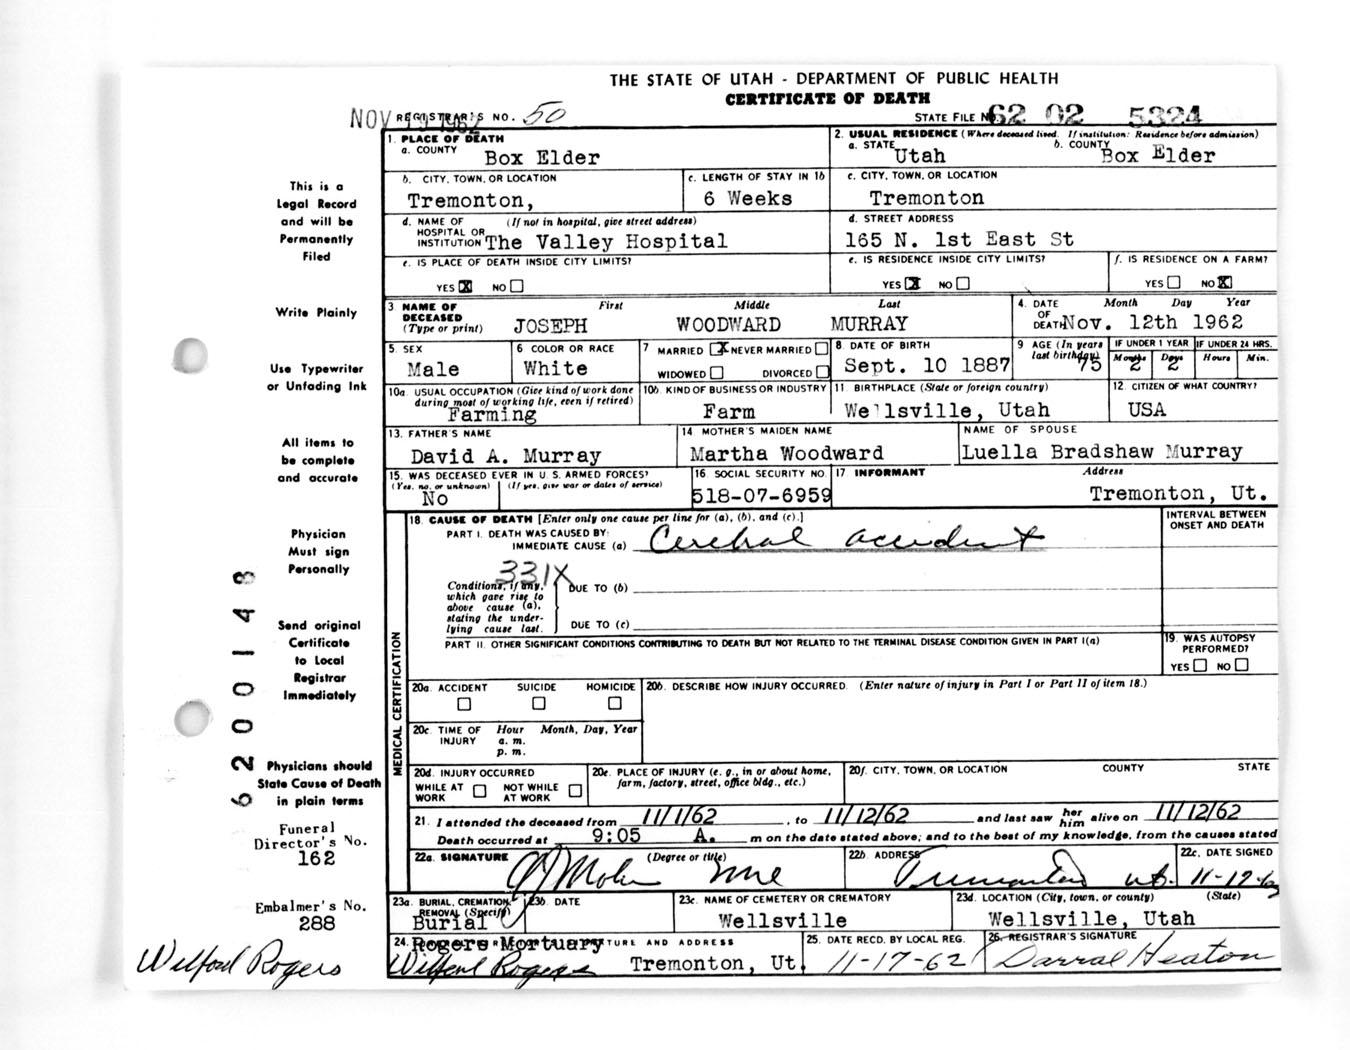 THE STATE OF UTAH - DEPARTMENT OF PUBLIC HEALTH
CERTIFICATE OF DEATH
NOV 19 1962 REGISTRAR'S NO. 50 STATE FILE NO. 62 02 5324
1. PLACE OF DEATH
a. COUNTY Box Elder
2. USUAL RESIDENCE (Where deceased lived. If institution: Residence before admission)
a. STATE Utah b. COUNTY Box Elder
b. CITY, TOWN, OR LOCATION Tremonton,
c. LENGTH OF STAY IN 1b 6 Weeks
c. CITY, TOWN, OR LOCATION Tremonton
d. NAME OF HOSPITAL OR INSTITUTION (If not in hospital, give street address) The Valley Hospital
d. STREET ADDRESS 165 N. 1st East St
e. IS PLACE OF DEATH INSIDE CITY LIMITS?
YES X NO
e. IS RESIDENCE INSIDE CITY LIMITS?
YES X NO
f. IS RESIDENCE ON A FARM?
YES NO X
3. NAME OF DECEASED (Type or print) First Middle Last
JOSEPH WOODWARD MURRAY
4. DATE OF DEATH Month Day Year
Nov. 12th 1962
5. SEX Male
6 COLOR OR RACE White
7 MARRIED X NEVER MARRIED
WIDOWED DIVORCED
8. DATE OF BIRTH Sept. 10 1887
9 AGE (In years last birthday) 75
IF UNDER 1 YEAR Months 2 Days 2
IF UNDER 24 HRS. Hours Min.
10a. USUAL OCCUPATION (Give kind of work done during most of working life, even if retired) Farming
10b. KIND OF BUSINESS OR INDUSTRY Farm
11. BIRTHPLACE (State or foreign country) Wellsville, Utah
12. CITIZEN OF WHAT COUNTRY? USA
13. FATHER'S NAME David A. Murray
14. MOTHER'S MAIDEN NAME Martha Woodward
NAME OF SPOUSE Luella Bradshaw Murray
15. WAS DECEASED EVER IN U.S. ARMED FORCES?
(Yes, no, or unknown) (If yes, give war or dates of service)
No
16. SOCIAL SECURITY NO. 518-07-6959
17. INFORMANT Address
Tremonton, Ut.
MEDICAL CERTIFICATION
18. CAUSE OF DEATH [Enter only one cause per line for (a), (b), and (c).]
INTERVAL BETWEEN ONSET AND DEATH
PART I. DEATH WAS CAUSED BY:
IMMEDIATE CAUSE (a) Cerebral accident
331X
Conditions, if any, which gave rise to above cause (a), stating the underlying cause last.
DUE TO (b)
DUE TO (c)
PART II. OTHER SIGNIFICANT CONDITIONS CONTRIBUTING TO DEATH BUT NOT RELATED TO THE TERMINAL DISEASE CONDITION GIVEN IN PART I(a)
19. WAS AUTOPSY PERFORMED?
YES NO
20a. ACCIDENT SUICIDE HOMICIDE
20b. DESCRIBE HOW INJURY OCCURRED. (Enter nature of injury in Part I or Part II of item 18.)
20c. TIME OF INJURY Hour Month, Day, Year
a. m.
p. m.
20d. INJURY OCCURRED
WHILE AT WORK NOT WHILE AT WORK
20e. PLACE OF INJURY (e. g., in or about home, farm, factory, street, office bldg., etc.)
20f. CITY, TOWN, OR LOCATION COUNTY STATE
21. I attended the deceased from 11/1/62, to 11/12/62 and last saw her him alive on 11/12/62
Death occurred at 9:05 A. m on the date stated above; and to the best of my knowledge, from the causes stated
22a. SIGNATURE (Degree or title)
22b. ADDRESS Tremonton ut.
22c. DATE SIGNED
23a. BURIAL, CREMATION, REMOVAL (Specify) Burial
23b. DATE
23c. NAME OF CEMETERY OR CREMATORY Wellsville
23d. LOCATION (City, town, or county) (State)
Wellsville, Utah
24. Rogers Mortuary SIGNATURE AND ADDRESS
Wilford Rogers Tremonton, Ut.
25. DATE RECD. BY LOCAL REG. 11-17-62
26. REGISTRAR'S SIGNATURE Darral Heaton
This is a
Legal Record
and will be
Permanently
Filed
Write Plainly
Use Typewriter
or Unfading Ink
All items to
be complete
and accurate
Physician
Must sign
Personally
Send original
Certificate
to Local
Registrar
Immediately
Physicians should
State Cause of Death
in plain terms
6200148
Funeral
Director's No.
162
Embalmer's No.
288
Wilford Rogers